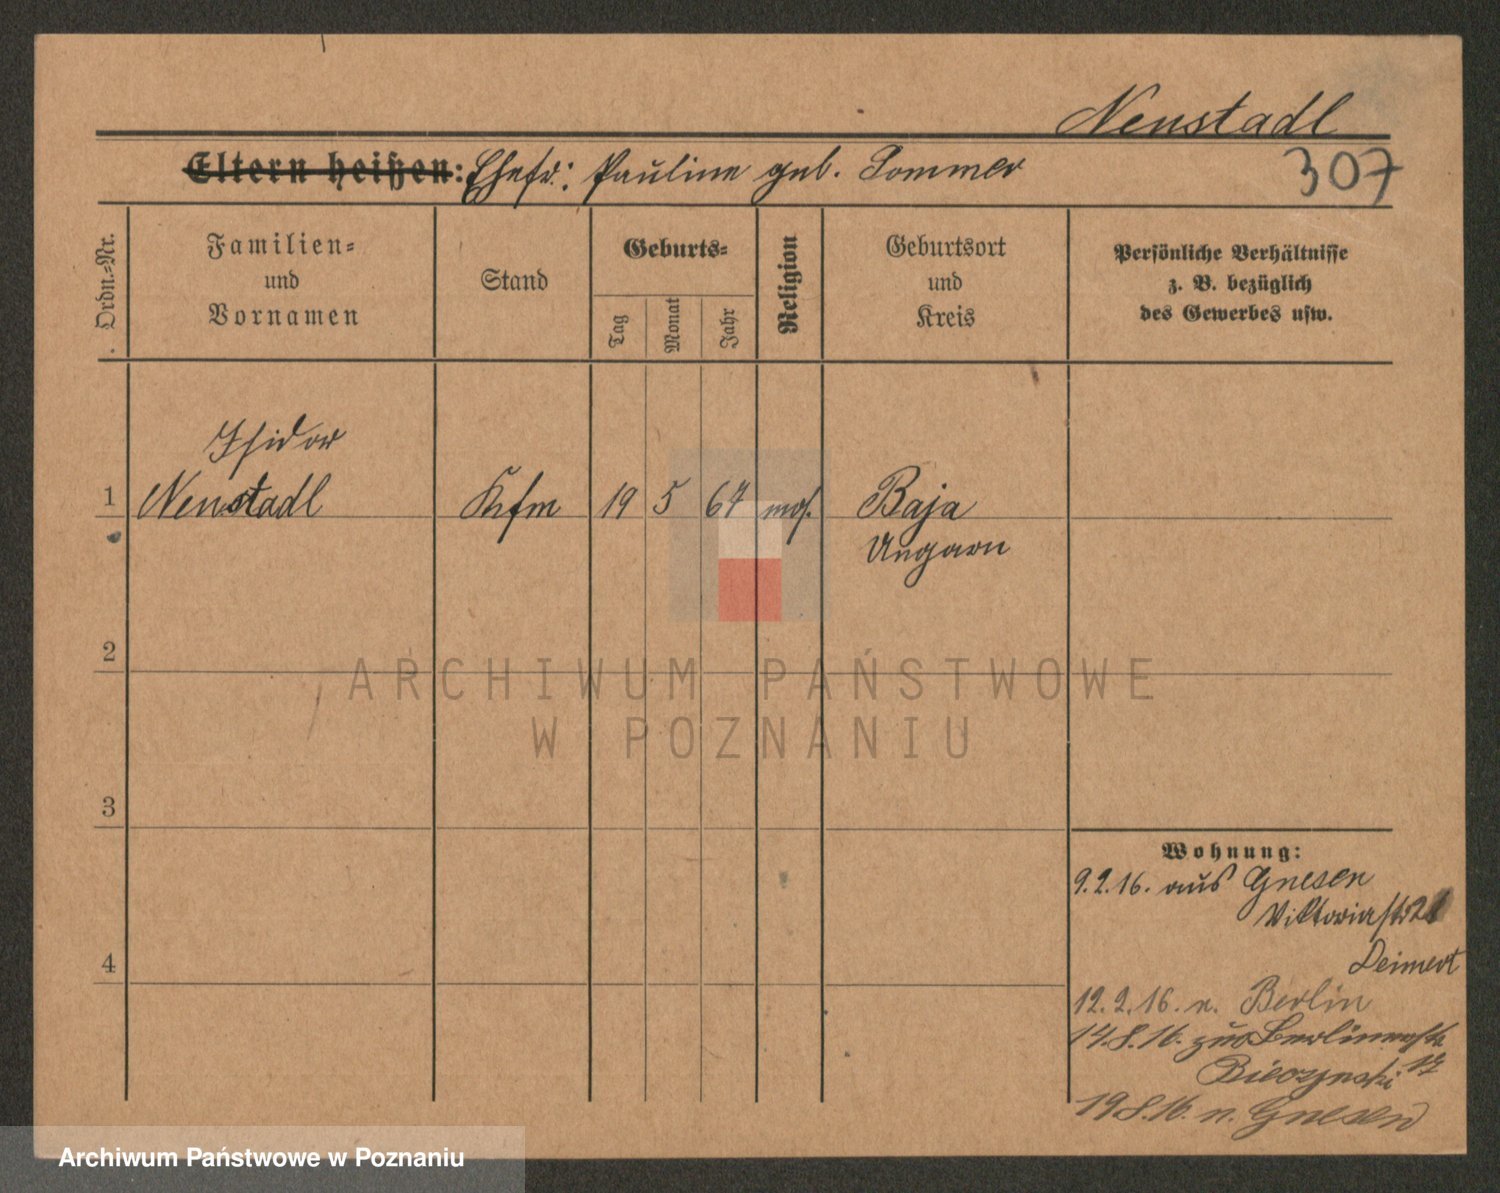 Neustadl
Eltern heißen: Ehefr: Pauline geb. Sommer
307
Ordn.=Nr.
Familien=
und
Vornamen
Stand
Geburts=
Tag
Monat
Jahr
Religion
Geburtsort
und
Kreis
Persönliche Verhältnisse
z. B. bezüglich
des Gewerbes usw.
Isidor
1 Neustadl Kfm 19 5 64 mos. Baja
Ungarn
2
3
4
ARCHIWUM PAŃSTWOWE
W POZNANIU
Wohnung:
9.2.16. aus Gnesen
Viktoriastr 21
Deimert
12.2.16. n. Berlin
14.8.16. zur Berlinerstr
17
19.8.16. n. Gnesen
Archiwum Państwowe w Poznaniu